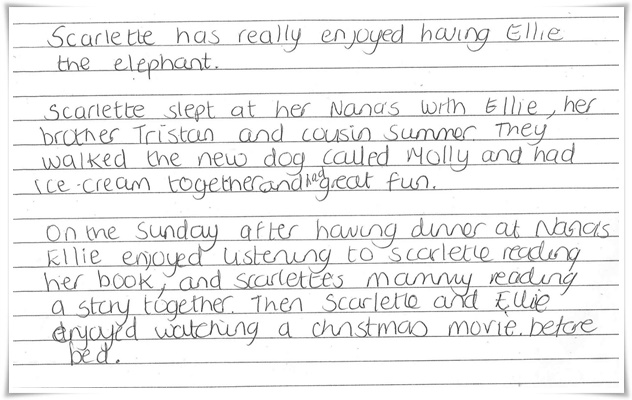 Scarlette has really enjoyed having Ellie
the elephant.
Scarlette slept at her Nana's with Ellie, her
brother Tristan and cousin Summer. They
walked the new dog called Molly and had
ice-cream together and had great fun.
On the Sunday after having dinner at Nana's
Ellie enjoyed listening to Scarlette reading
her book, and Scarlette's mammy reading
a story together. Then Scarlette and Ellie
enjoyed watching a christmas movie. before
bed.